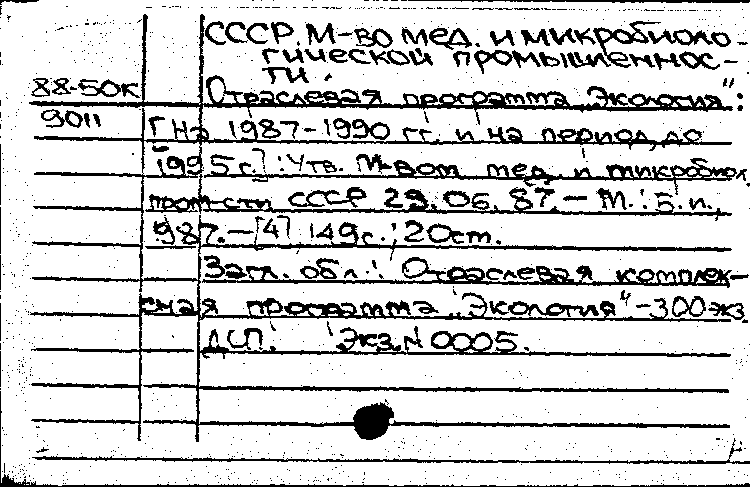 СССР. М-во мед. и микробиоло-
гической промышленнос-
ти.
88-50к Отраслевая программа „Экология":
9011 [На 1987-1990 гг. и на период до
1995г.] : Утв. М-вом мед. и микробиол.
пром-сти СССР 29.06.87. — М. : Б.и.,
1987. — [4], 149с. ; 20см.
Загл. обл.: Отраслевая комплек-
сная программа „Экология" — 300экз.
ДСП. Экз. N 0005.